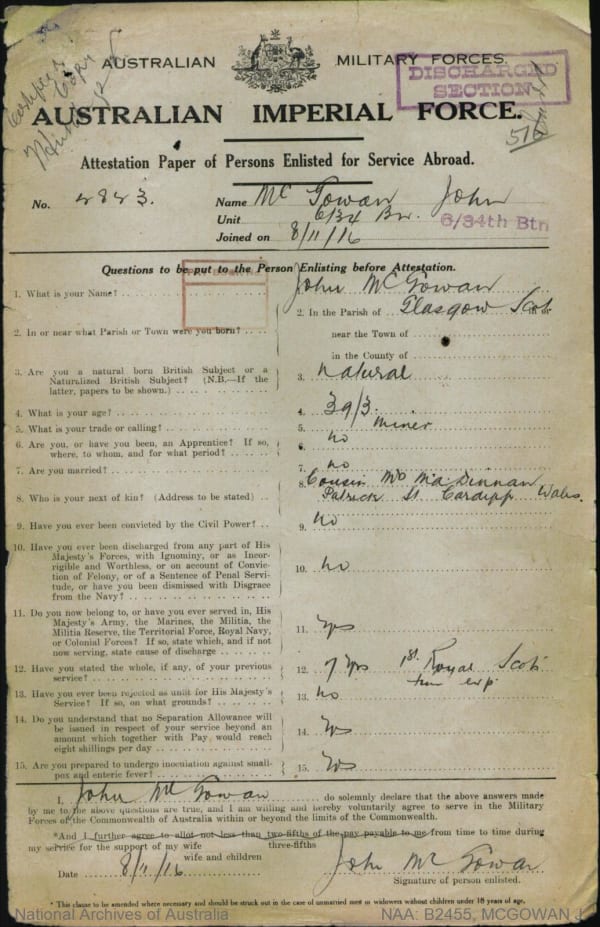 AUSTRALIAN MILITARY FORCES.
DISCHARGED
SECTION
AUSTRALIAN IMPERIAL FORCE.
Attestation Paper of Persons Enlisted for Service Abroad.
No. 2823. Name McGowan John
Unit 6/34 Bn. 6/34th Btn
Joined on 8/11/16
Questions to be put to the Person Enlisting before Attestation.
1. What is your Name? John McGowan
2. In or near what Parish or Town were you born? 2. In the Parish of Glasgow Scot
near the Town of
in the County of
3. Are you a natural born British Subject or a
Naturalized British Subject? (N.B.—If the
latter, papers to be shown.) 3. Natural
4. What is your age? 4. 39/3.
5. What is your trade or calling? 5. Miner
6. Are you, or have you been, an Apprentice? If so,
where, to whom, and for what period? 6. no
7. Are you married? 7. no
8. Who is your next of kin? (Address to be stated) 8. Cousin Dinnan
Patrick St. Cardiff Wales.
9. Have you ever been convicted by the Civil Power? 9. no
10. Have you ever been discharged from any part of His
Majesty's Forces, with Ignominy, or as Incor-
rigible and Worthless, or on account of Convic-
tion of Felony, or of a Sentence of Penal Servi-
tude, or have you been dismissed with Disgrace
from the Navy? 10. no
11. Do you now belong to, or have you ever served in, His
Majesty's Army, the Marines, the Militia, the
Militia Reserve, the Territorial Force, Royal Navy,
or Colonial Forces? If so, state which, and if not
now serving, state cause of discharge 11. Yes
12. Have you stated the whole, if any, of your previous
service? 12. 7 Yrs 1st Royal Scots
time exp
13. Have you ever been rejected as unfit for His Majesty's
Service? If so, on what grounds? 13. no
14. Do you understand that no Separation Allowance will
be issued in respect of your service beyond an
amount which together with Pay would reach
eight shillings per day 14. Yes
15. Are you prepared to undergo inoculation against small-
pox and enteric fever? 15. Yes
I, John McGowan do solemnly declare that the above answers made
by me to the above questions are true, and I am willing and hereby voluntarily agree to serve in the Military
Forces of the Commonwealth of Australia within or beyond the limits of the Commonwealth.
*And I further agree to allot not less than two-fifths of the pay payable to me from time to time during
three-fifths
my service for the support of my wife
wife and children
Date 8/11/16 John McGowan
Signature of person enlisted.
* This clause to be amended where necessary and should be struck out in the case of unmarried men or widowers without children under 18 years of age.
National Archives of Australia NAA: B2455, MCGOWAN J